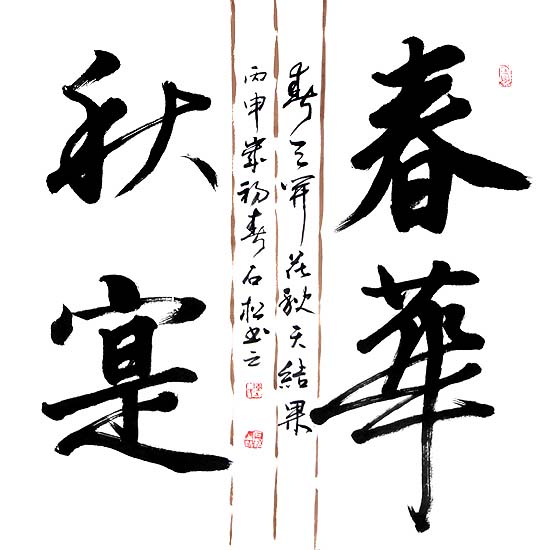 春華
秋寔
春天開花秋天結果
丙申歲初春石松書之